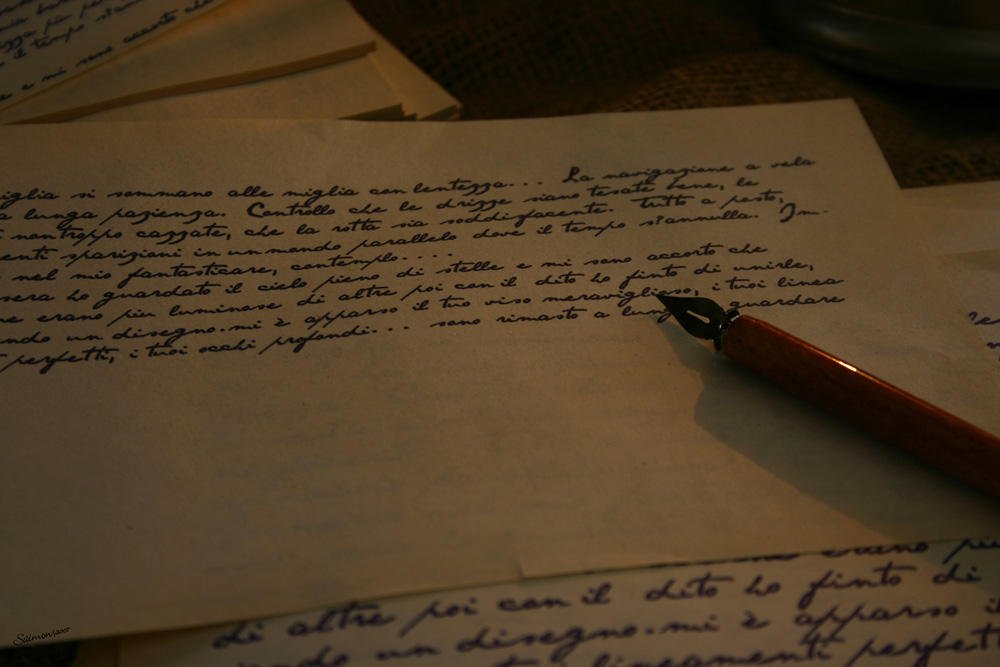 più per
il tempo s'an
e e mi sono accorto che
iglia si sommano alle miglia con lentezza... La navigazione a vela
a lunga pazienza. Controllo che le drizze siano tesate bene, le
nontroppo cazzate, che la rotta sia soddisfacente. Tutto a posto,
enti sparizioni in un mondo parallelo dove il tempo s'annulla. Im-
nel mio fantasticare, contemplo....
sera ho guardato il cielo pieno di stelle e mi sono accorto che
ne erano piu luminose di altre poi con il dito ho finto di unirle,
ndo un disegno. mi è apparso il tuo viso meraviglioso, i tuoi linea
perfetti, i tuoi occhi profondi... sono rimasto a lung guardare
erano più
di altre poi con il dito ho finto di
ando un disegno. mi è apparso i
i lineamenti perfett
Saimon/2007